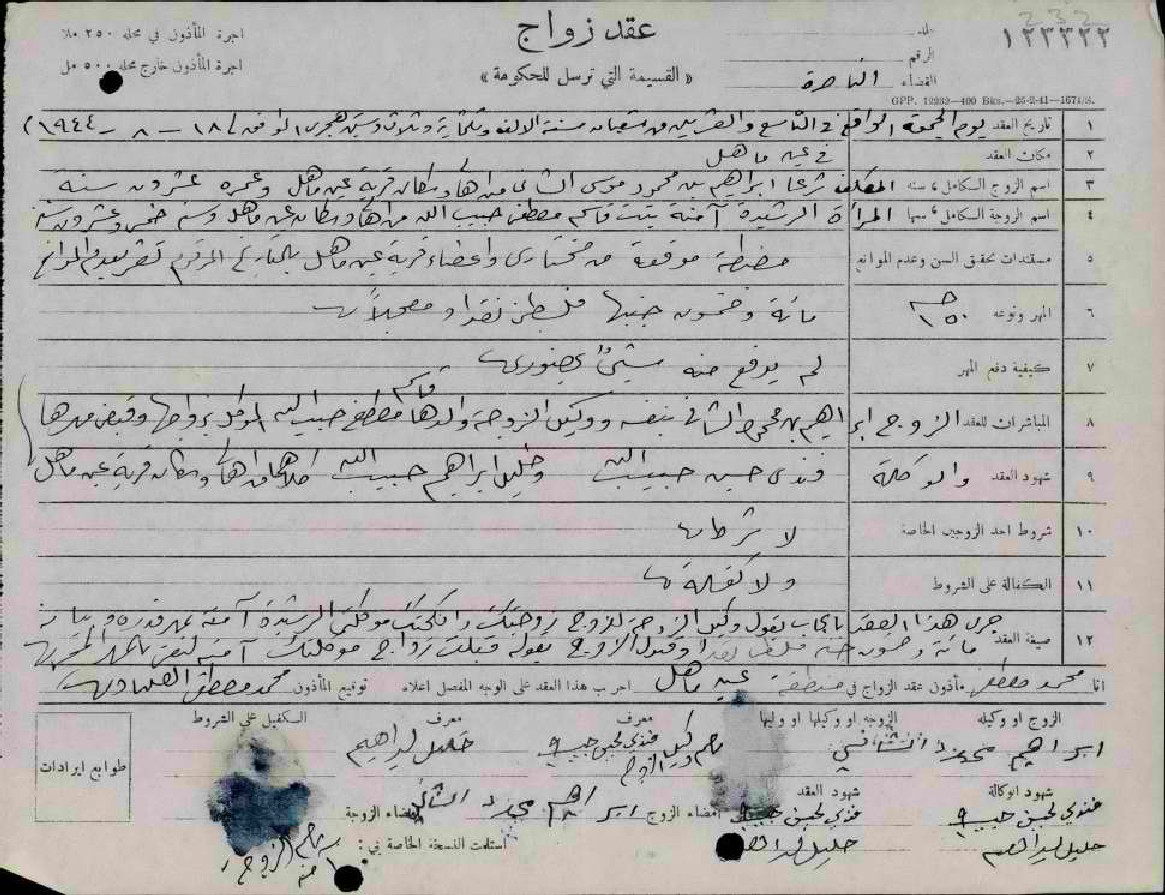 232
١٢٣٢٢٢
عقد زواج
« القسيمة التي ترسل للحكومة »
اجرة المأذون في محله ٢٥٠ ملا
اجرة المأذون خارج محله ٥٠٠ مل
جلد
الرقم
القضاء الناصرة
GPP. 12232—400 Bks.—26-2-41—1671/S.
١ تاريخ العقد يوم الجمعة الواقع في التاسع والعشرين من شعبان سنة الالف وثلثماية وثلاث وستين هجري الموافق ١٨ – ٨ – ١٩٤٤
٢ مكان العقد في عين ماهل
٣ اسم الزوج الكامل، سنه المكلف شرعا ابراهيم بن محمود موسى الشافي من اهالي وسكان قرية عين ماهل وعمره عشرون سنة
٤ اسم الزوجة الكامل، سنها المرأة الرشيدة آمنة بنت قاسم مصطفى حبيب الله من اهالي وسكان عين ماهل وسنها خمس وعشرون سنة
٥ مستندات تحقق السن وعدم الموانع مضبطة موقعة من مختاري واعضاء قرية عين ماهل بالتاريخ المرقوم تشعر بعدم الموانع
٦ المهر ونوعه ١٥٠ ماية وخمسون جنيها فلسطينيا نقدا ومعجلا
٧ كيفية دفع المهر لم يدفع منه شيئ بحضوري
٨ المباشران للعقد الزوج ابراهيم بن محمود الشافي بنفسه ووكيل الزوجة والدها قاسم مصطفى حبيب الله الموكل بزواجها وقبض مهرها
٩ شهود العقد والوكالة فندي حسين حبيب الله وخليل ابراهيم حبيب الله كلاهما من اهالي وسكان قرية عين ماهل
١٠ شروط احد الزوجين الخاصة لا شرط
١١ الكفالة على الشروط ولا كفالة
١٢ صيغة العقد جرى هذا العقد بايجاب بقول وكيل الزوجة للزوج زوجتك وانكحتك موكلتي الرشيدة آمنة بمهر قدره
ماية وخمسون جنيه فلسطيني نقدا وقبول الزوج بقوله قبلت زواج موكلتك آمنة لنفسي بالمهر
انا محمد مصطفى مأذون عقد الزواج في منطقة عين ماهل اجريت هذا العقد على الوجه المفصل اعلاه توقيع المأذون محمد مصطفى
الزوج او وكيله الزوجه او وكيلها او وليها معرف معرف الكفيل على الشروط
ابراهيم محمود الشافي فندي حسين حبيب خليل ابراهيم
طوابع ايرادات
شهود الوكالة شهود العقد
فندي حسين حبيب فندي حسين حبيب امضاء الزوج ابراهيم محمود الشافي امضاء الزوجة
خليل ابراهيم خليل ابراهيم استلمت النسخة الخاصة بي: